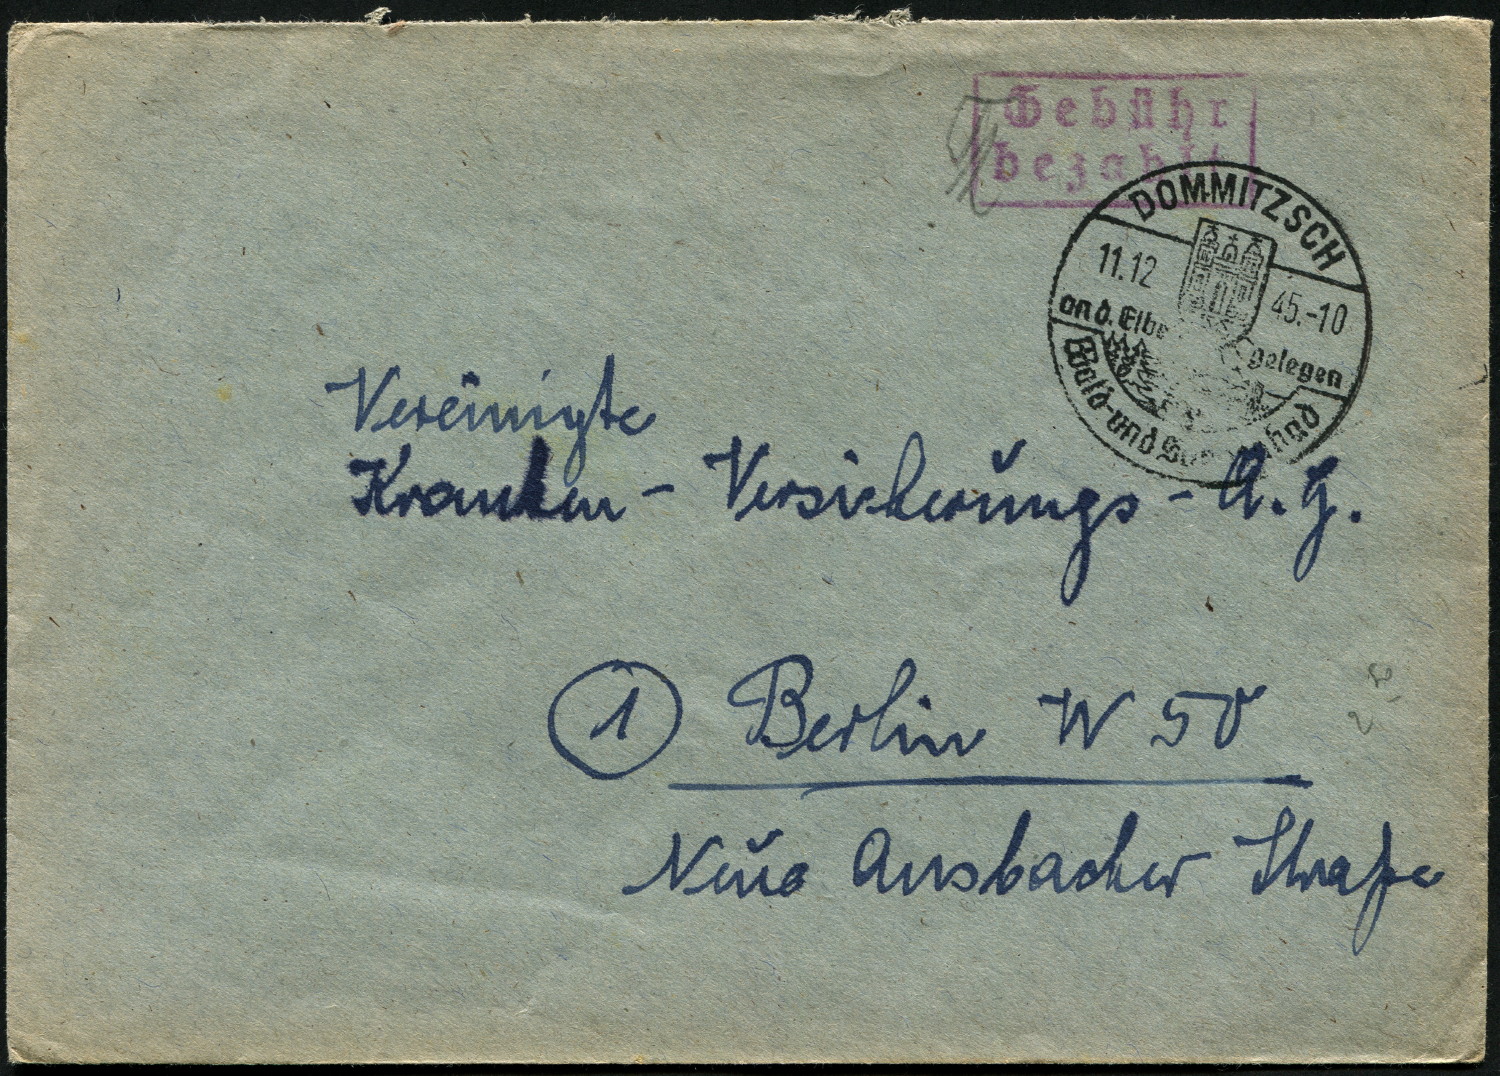 Gebühr
bezahlt
DOMMITZSCH
11.12 45.-10
an d. Elbe gelegen
Wald- und
Vereinigte
Kranken - Versicherungs - A.G.
1 Berlin W 50
Neue Ansbacher Straße